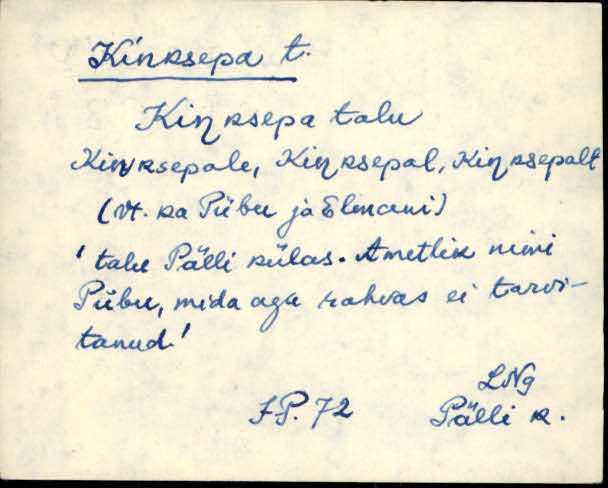 Kinksepa t.
Kiŋksepa talu
Kiŋksepale, Kiŋksepal, Kiŋksepalt
(vt. ka Piibu ja Elmani)
' talu Pälli külas. Ametlik nimi
Piibu, mida aga rahvas ei tarvi-
tanud.'
LNg
J.P. 72 Pälli k.